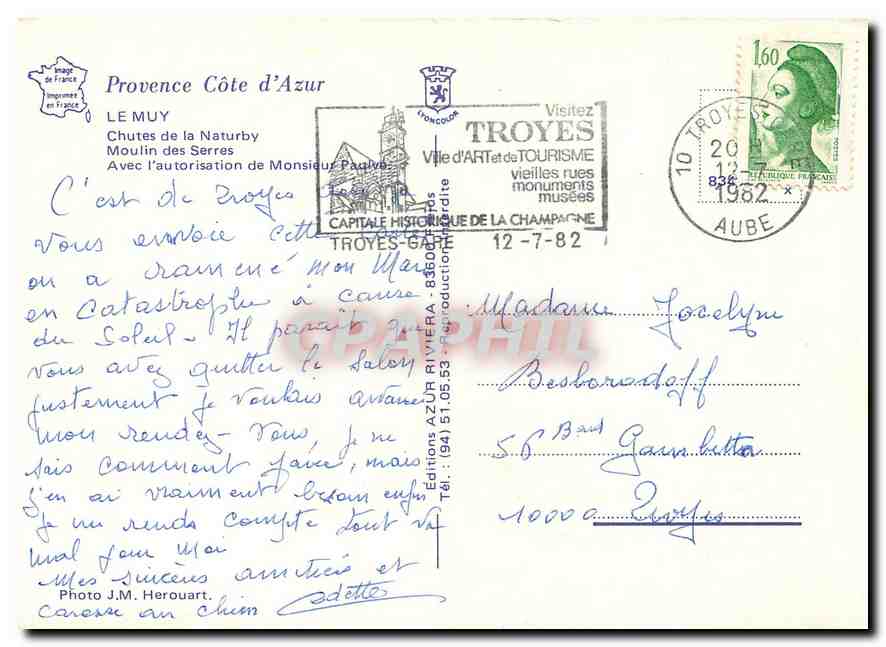 Image
de France
Imprimée
en France
Provence Côte d'Azur
LE MUY
Chutes de la Naturby
Moulin des Serres
Avec l'autorisation de Monsieur
LYONCOLOR
Visitez
TROYES
Ville d'ART et de TOURISME
vieilles rues
monuments
musées
CAPITALE HISTORIQUE DE LA CHAMPAGNE
TROYES-GARE 12-7-82
1,60
POSTES
REPUBLIQUE FRANÇAIS
10 TROYES
20H
12-7
1982
AUBE
836
C'est de Troyes
vous envoie cette carte
on a ramené mon Mari
en Catastrophe à cause
du Soleil. Il paraît que
vous avez quitter le Salon
justement je voulais avancer
mon rendez-vous, je ne
sais comment faire, mais
j'en ai vraiment besoin enfin
je me rends compte tout va
mal pour moi
Mes sincères amitiés et
caresse au chien Odette
Photo J.M. Herouart.
Editions AZUR RIVIERA - 83600 Fréjus
Tél. : (94) 51.05.53 - Reproduction interdite
CPAPHIL
Madame Jocelyne
Besborodoff
56 Bard Gambetta
10000 Troyes